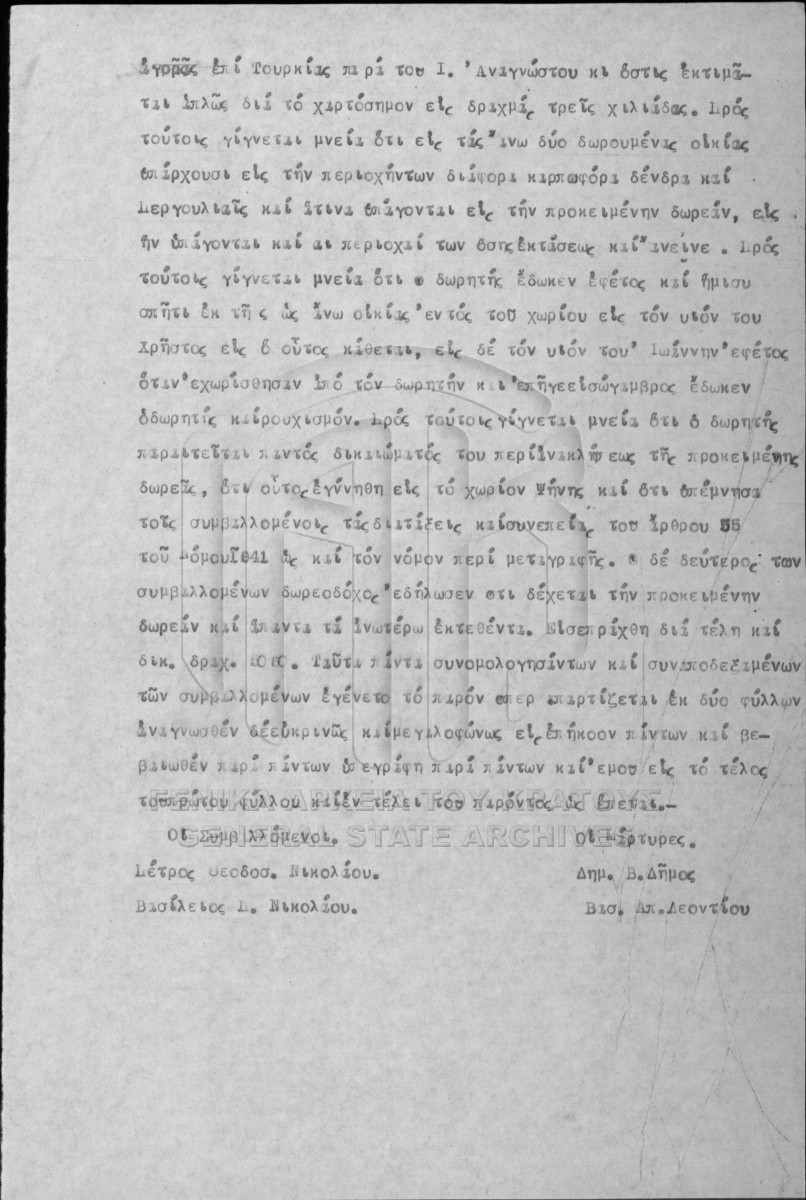 ἀγορᾶς ἐπί Τουρκίας παρά του Ι. 'Αναγνώστου κι ὅστις ἐκτιμᾶ-
ται ἁπλῶς διά τό χαρτόσημον εἰς δραχμάς τρεῖς χιλιάδας. Πρός
τούτοις γίγνεται μνεία ὅτι εἰς τάς ἄνω δύο δωρουμένας οἰκίας
ὑπάρχουσι εἰς τήν περιοχήντων διάφορα καρπωφόρα δένδρα καί
Περγουλιαῖς καί ἅτινα ὑπάγονται εἰς τήν προκειμένην δωρεάν, εἰς
ἥν ὑπάγονται καί αι περιοχαί των ὅσηςἐκτάσεως καί ἄνεἶνε . Πρός
τούτοις γίγνεται μνεία ὅτι ο δωρητής ἔδωκεν ἐφέτος καί ἥμισυ
σπῆτι ἐκ τῆς ὡς ἄνω οἰκίας 'εντός τοῦ χωρίου εἰς τόν υιόν του
Χρῆστος εἰς ὅ οὗτος κάθεται, εἰς δέ τόν υιόν του' Ιωάννην'εφέτος
ὅταν'εχωρίσθησαν ἀπό τόν δωρητήν και'επῆγεεἰσώγαμβρος ἔδωκεν
ὁδωρητής καίρουχισμόν. Πρός τούτοιςγίγνεται μνεία ὅτι ὁ δωρητής
παραιτεῖται παντός δικαιώματός του περίἀνακλήσεως τῆς προκειμένης
δωρεᾶς, ὅτι οὗτοςἐγύννηθη εἰς τό χωρίον Ψήνης καί ὅτι ὑπέμνησα
τοῖς συμβαλλομένοις τάςδιατάξεις καίσυνεπείας του ἄρθρου 55
τοῦ Νόμου 1641 ὡς καί τόν νόμον περί μεταγραφῆς. ο δέ δεύτερος των
συμβαλλομένων δωρεοδόχος'εδήλωσεν οτι δέχεται τήν προκειμένην
δωρεάν καί ἅπαντα τά ἀνωτέρω ἐκτεθέντα. Εἰσεπράχθη διά τέλη καί
δικ. δραχ. Ταῦτα πάντα συνομολογησάντων καί συναποδεξαμένων
τῶν συμβαλλομένων ἐγένετο τό παρόν οπερ απαρτίζεται ἐκ δύο φύλλων
ἀναγνωσθέν δέεὐκρινῶς καίμεγαλοφώνως εἰςἐπήκοον πάντων καί βε-
βαιωθέν παρά πάντων ὑπεγράφη παρά πάντων καί'εμου εἰς τό τέλος
τουπρώτου φύλλου καίἐν τέλει του παρόντος ὡς ἕπεται.-
ΓΕΝΙΚΑ ΑΡΧΕΙΑ ΤΟΥ ΚΡΑΤΟΥΣ
GENERAL STATE ARCHIVES
Οἱ Συμβαλλόμενοι. Οἱ Μάρτυρες.
Πέτρος Θεοδοσ. Νικολάου. Δημ. Β.Δῆμος
Βασίλειος Π. Νικολάου. Βασ. Απ.Λεοντίου